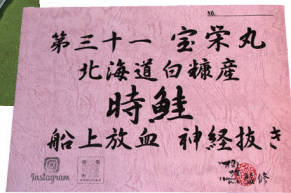 No.
第三十一 宝栄丸
北海道白糠産
時鮭
船上放血 神経抜き
Instagram